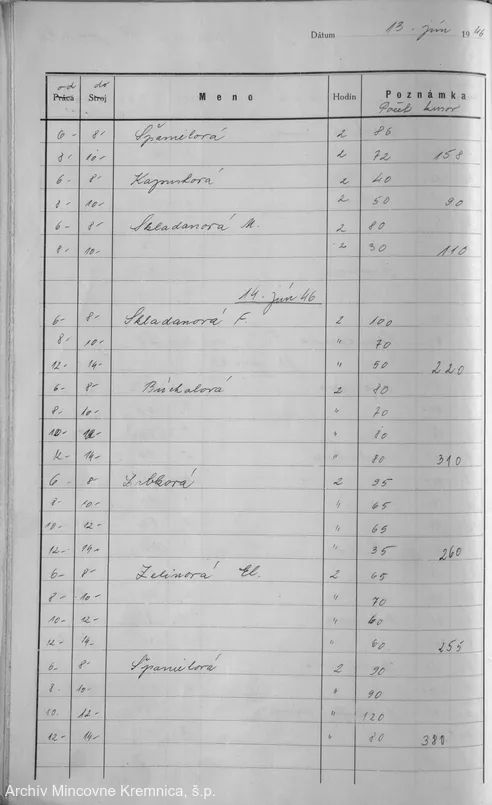 Dátum 13. jún 1946
od do
Práca Stroj Meno Hodín Poznámka
Počet kusov
6- 8- Španielová 2 86
8- 10- 2 72 158
6- 8- Kapustová 2 40
8- 10- 2 50 90
6- 8- Skladanová M. 2 80
8- 10- 2 30 110
14. jún 46
6- 8- Skladanová F. 2 100
8- 10- " 70
12- 14- " 50 220
6- 8- 2 80
8- 10- " 70
10- 12- " 80
12- 14- " 80 310
6- 8- 2 95
8- 10- " 65
10- 12- " 65
12- 14- " 35 260
6- 8- Zelinová El. 2 65
8- 10- " 70
10- 12- " 60
12- 14- " 60 255
6- 8- Španielová 2 90
8- 10- " 90
10- 12- " 120
12- 14- " 80 380
Archív Mincovne Kremnica, š.p.